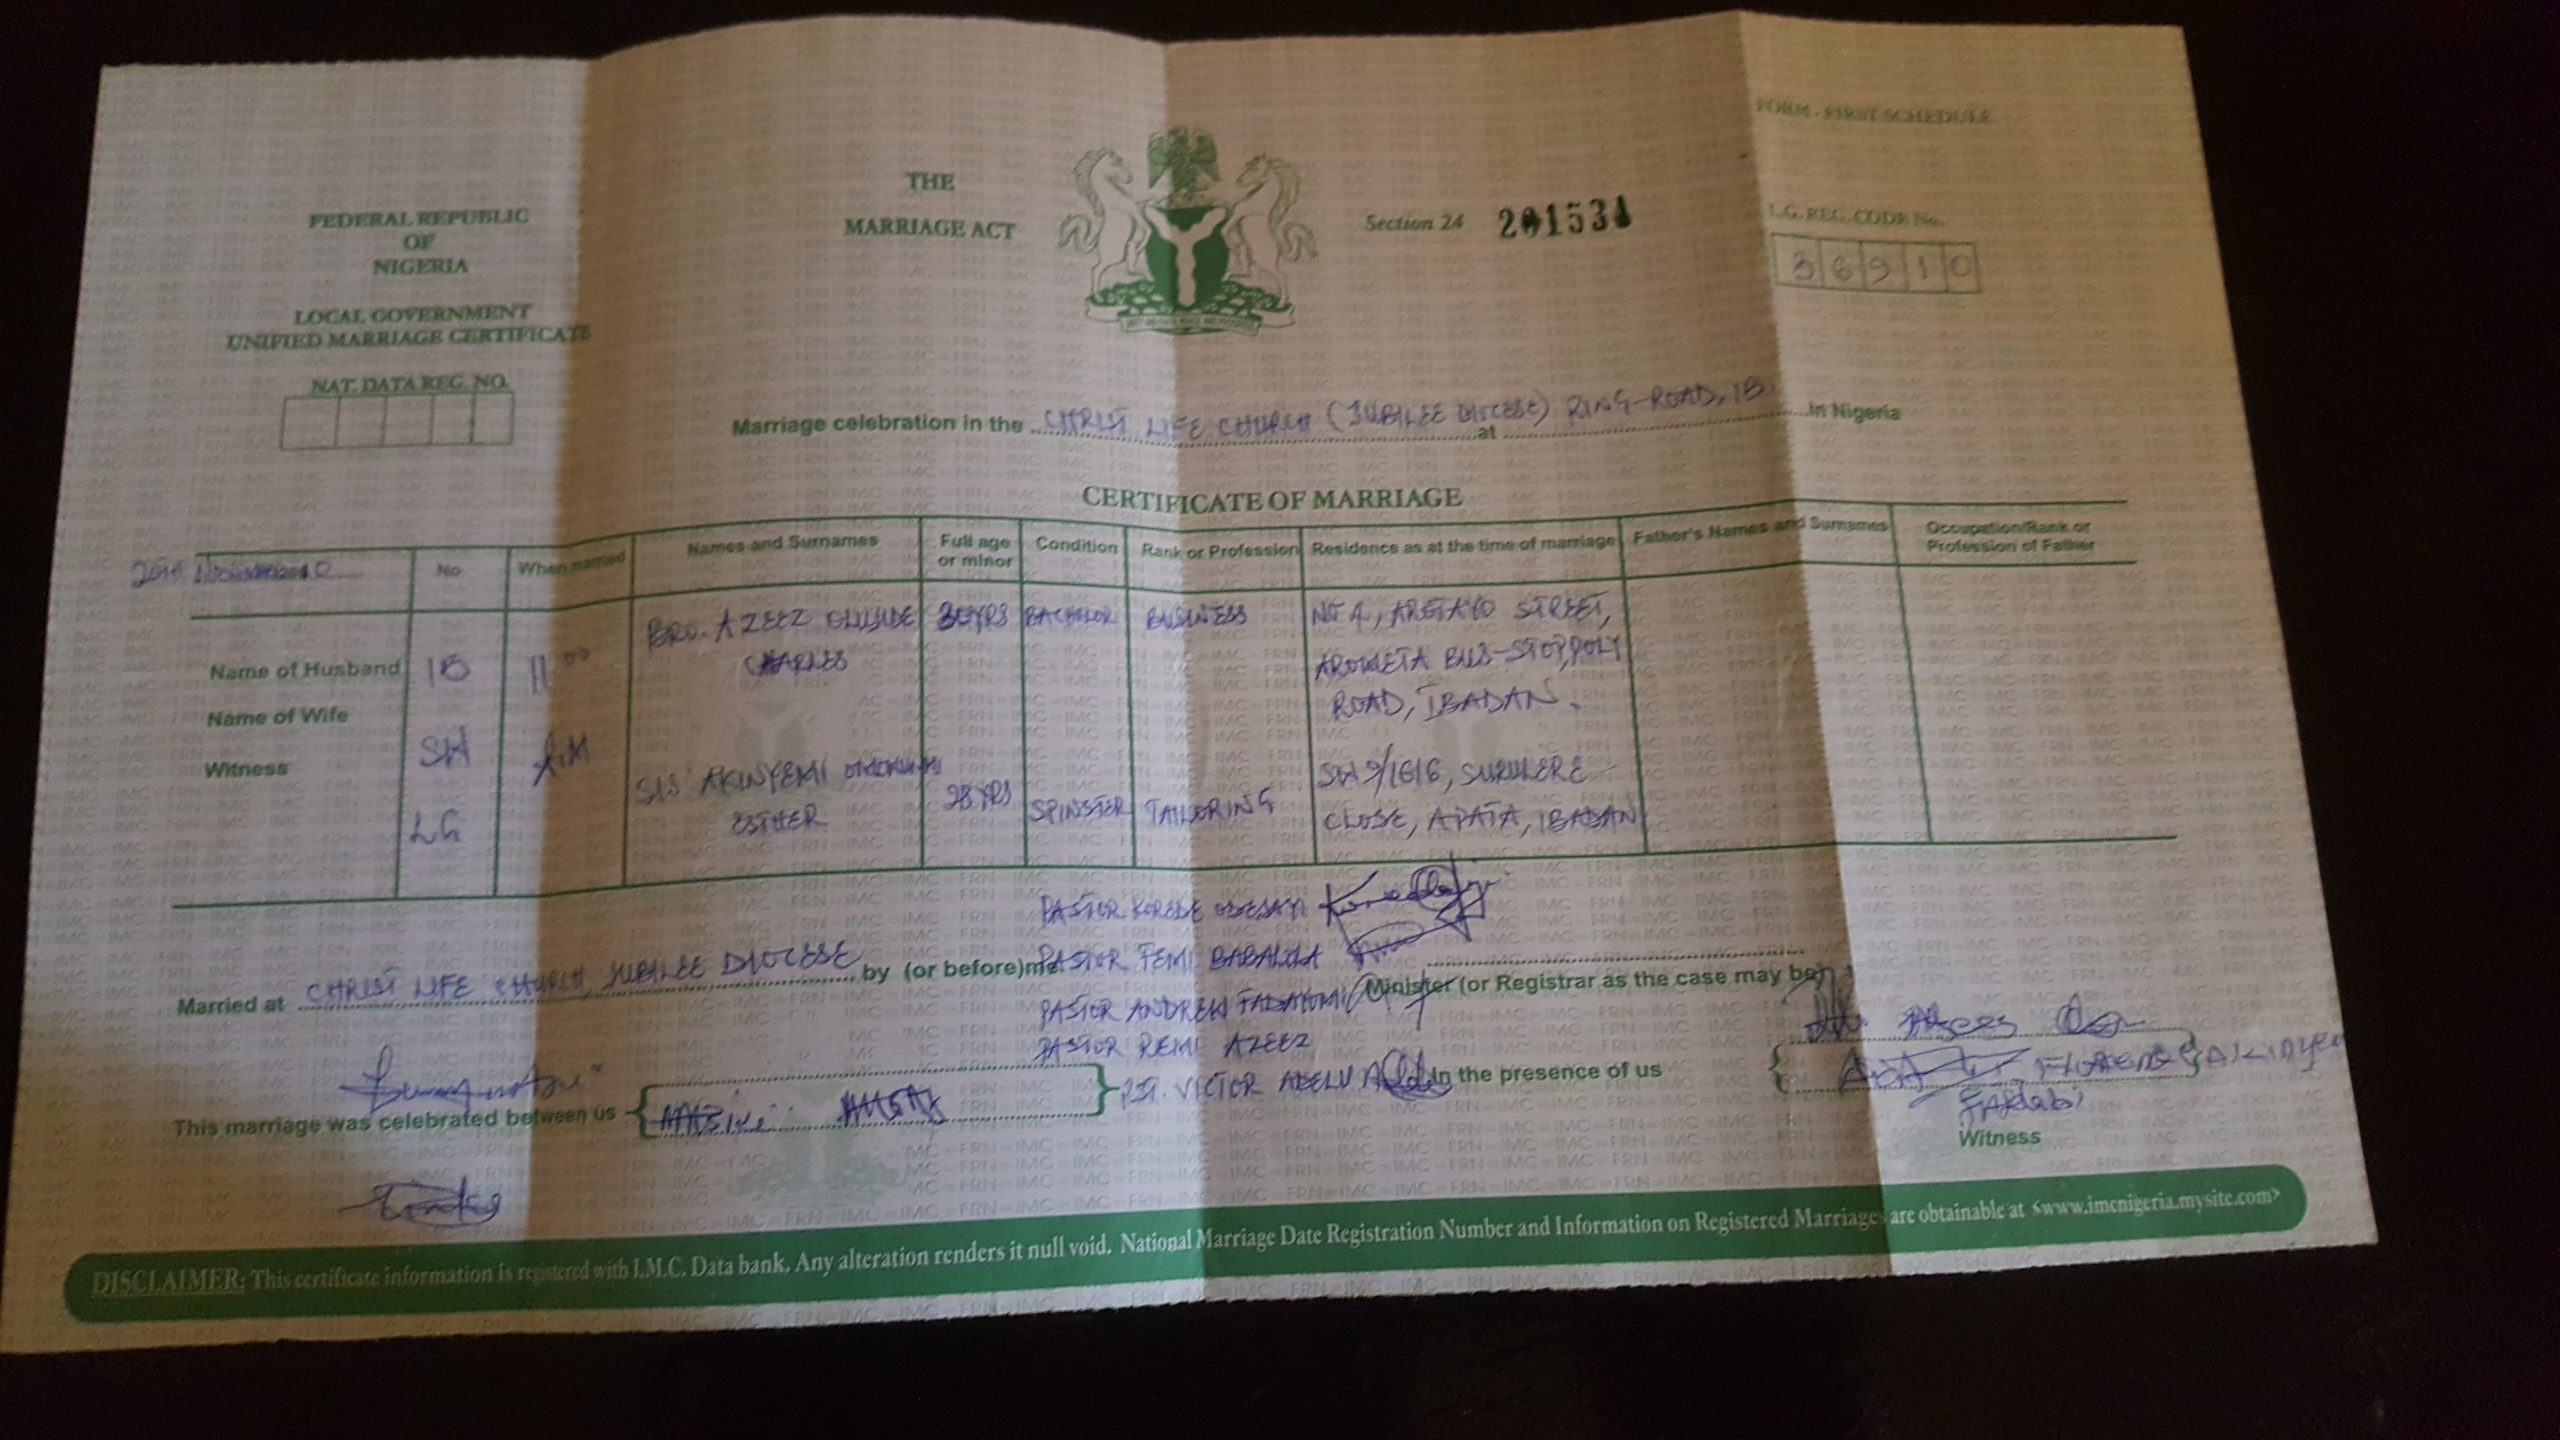 FORM - FIRST SCHEDULE
FEDERAL REPUBLIC
OF
NIGERIA
LOCAL GOVERNMENT
UNIFIED MARRIAGE CERTIFICATE
NAT. DATA REG. NO.
THE
MARRIAGE ACT
Section 24 201534
L.G. REG. CODE No.
36910
Marriage celebration in the CHRIST LIFE CHURCH (JUBILEE DIOCESE) at RING-ROAD, IB in Nigeria
CERTIFICATE OF MARRIAGE
No When married Names and Surnames Full age or minor Condition Rank or Profession Residence as at the time of marriage Father's Names and Surnames Occupation/Rank or Profession of Father
Name of Husband
Name of Wife
Witness
IB
SW
LG
11:00
A.M
BRO. AZEEZ CHARLES 30YRS BACHELOR BUSINESS STREET,
BUS-STOP, POLY
ROAD, IBADAN.
SIS AKINYEMI
ESTHER 28YRS SPINSTER TAILORING SW9/1616, SURULERE
CLOSE, APATA, IBADAN
PASTOR KOREDE
PASTOR FEMI BABALOLA
Married at CHRIST LIFE CHURCH, JUBILEE DIOCESE by (or before) me
Minister (or Registrar as the case may be)
PASTOR ANDREW
PASTOR REMI AZEEZ
PST. VICTOR
This marriage was celebrated between us
In the presence of us
Witness
DISCLAIMER: This certificate information is registered with I.M.C. Data bank. Any alteration renders it null void. National Marriage Date Registration Number and Information on Registered Marriages are obtainable at <www.imcnigeria.mysite.com>